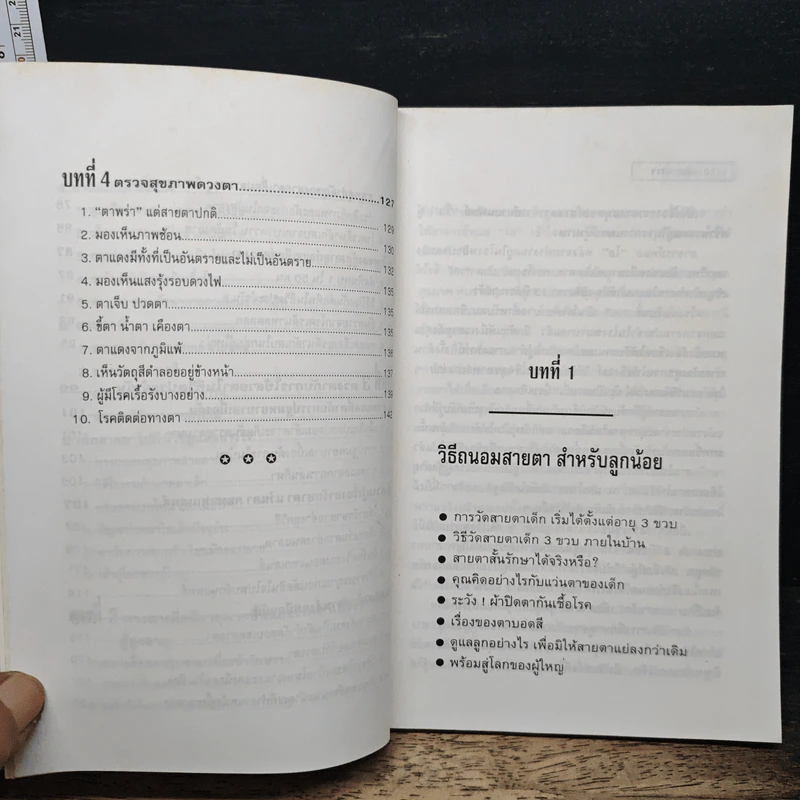 บทที่ 4 ตรวจสุขภาพดวงตา........................127
1. "ตาพร่า" แต่สายตาปกติ........................129
2. มองเห็นภาพซ้อน........................130
3. ตาแดงมีทั้งที่เป็นอันตรายและไม่เป็นอันตราย............132
4. มองเห็นแสงรุ้งรอบดวงไฟ........................135
5. ตาเจ็บ ปวดตา........................135
6. ขี้ตา น้ำตา เคืองตา........................135
7. ตาแดงจากภูมิแพ้........................136
8. เห็นวัตถุสีดำลอยอยู่ข้างหน้า........................137
9. ผู้มีโรคเรื้อรังบางอย่าง........................139
10. โรคติดต่อทางตา ........................142
บทที่ 1
วิธีถนอมสายตา สำหรับลูกน้อย
● การวัดสายตาเด็ก เริ่มได้ตั้งแต่อายุ 3 ขวบ
● วิธีวัดสายตาเด็ก 3 ขวบ ภายในบ้าน
● สายตาสั้นรักษาได้จริงหรือ?
● คุณคิดอย่างไรกับแว่นตาของเด็ก
● ระวัง ! ผ้าปิดตากันเชื้อโรค
● เรื่องของตาบอดสี
● ดูแลลูกอย่างไร เพื่อมิให้สายตาแย่ลงกว่าเดิม
● พร้อมสู่โลกของผู้ใหญ่